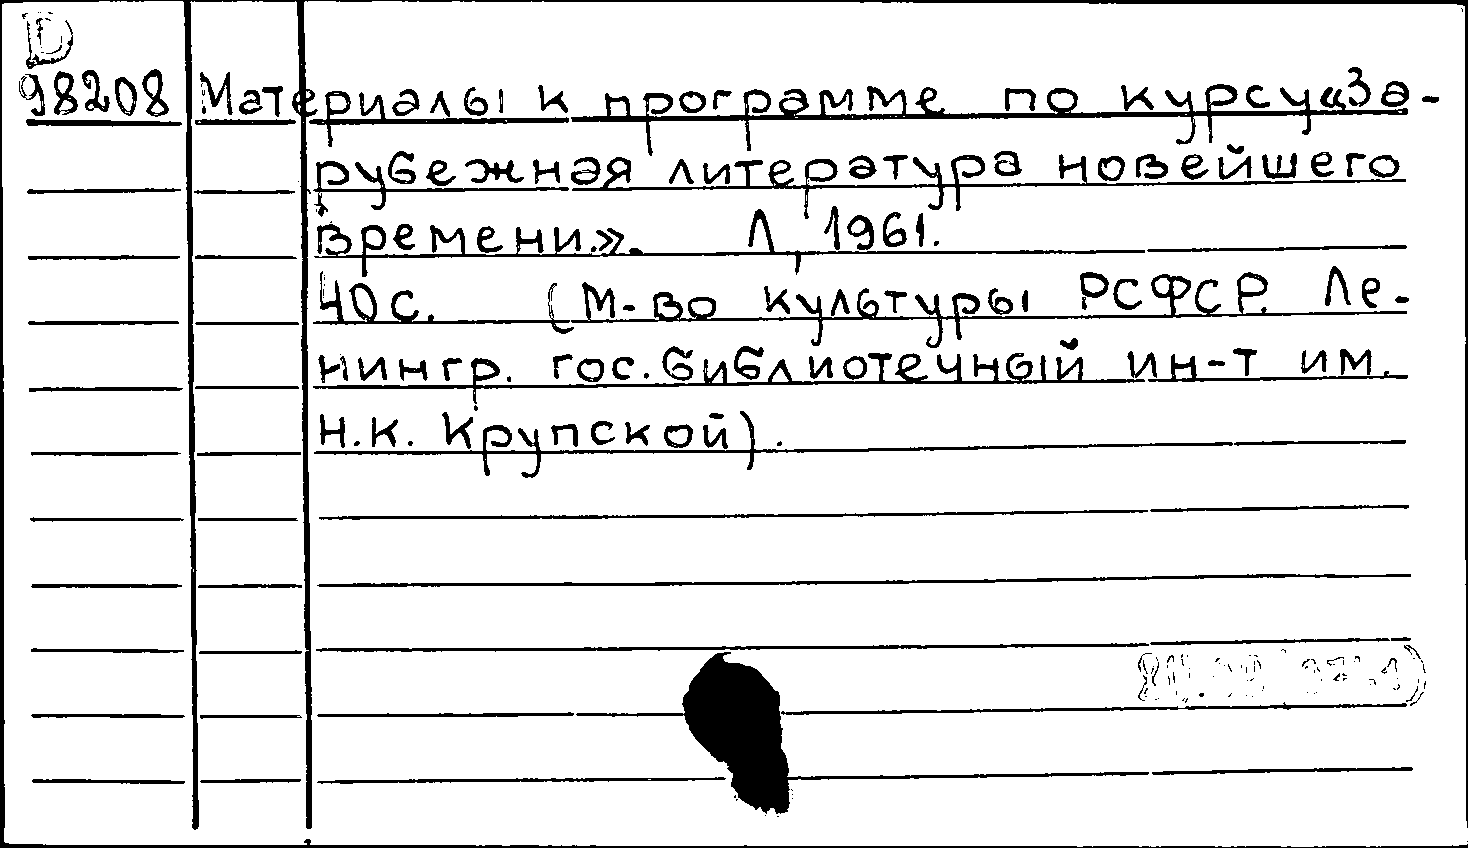 D
98208 Материалы к программе по курсу «За-
рубежная литература новейшего
времени.». Л, 1961.
40 с. (М-во культуры РСФСР. Ле-
нингр. гос. библиотечный ин-т им.
Н.К. Крупской).